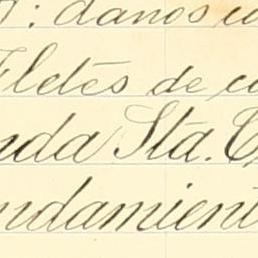 : danos co
Fletes de co
nda Sta. C
ndamient